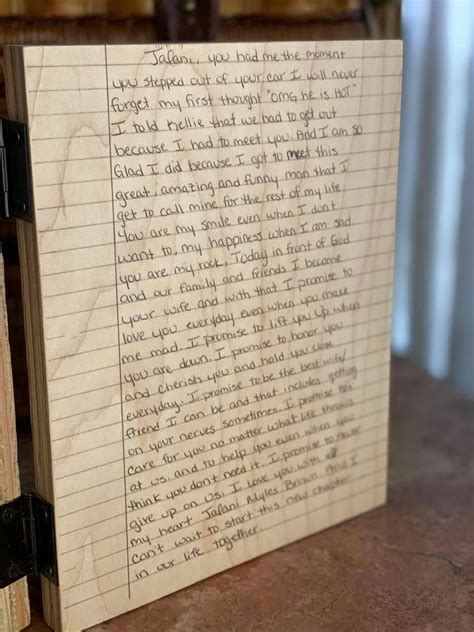 Jafani, you had me the moment
you stepped out of your car I will never
forget my first thought "OMG he is HOT"
I told Kellie that we had to get out
because I had to meet you. And I am so
Glad I did because I got to meet this
great, amazing and funny man that I
get to call mine for the rest of my life
You are my smile even when I don't
want to, my happiness when I am sad
you are my rock. Today in front of God
and our family and friends I become
your wife and with that I promise to
love you everyday even when you make
me mad. I promise to lift you up when
you are down. I promise to honor you
and cherish you and hold you close
everyday. I promise to be the best wife/
friend I can be and that includes getting
on your nerves sometimes. I promise to
care for you no matter what life throws
at us. and to help you even when you
think you don't need it. I promise to never
give up on us. I love you with all
my heart Jafani Myles Brown. And I
can't wait to start this new chapter
in our life together.